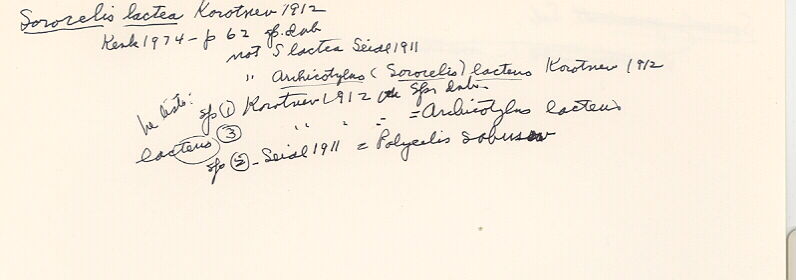 Sorocelis lactea Korotnev 1912
Kenk 1974 - p 62 sp. dub
not S lactea Seidl 1911
" Archicotylus (Sorocelis) lacteus Korotnev 1912
he lists: sp ① Korotnev 1912 sp. dub.
lacteus ③ " " = Archicotylus lacteus
sp ② - Seidl 1911 = Polycelis